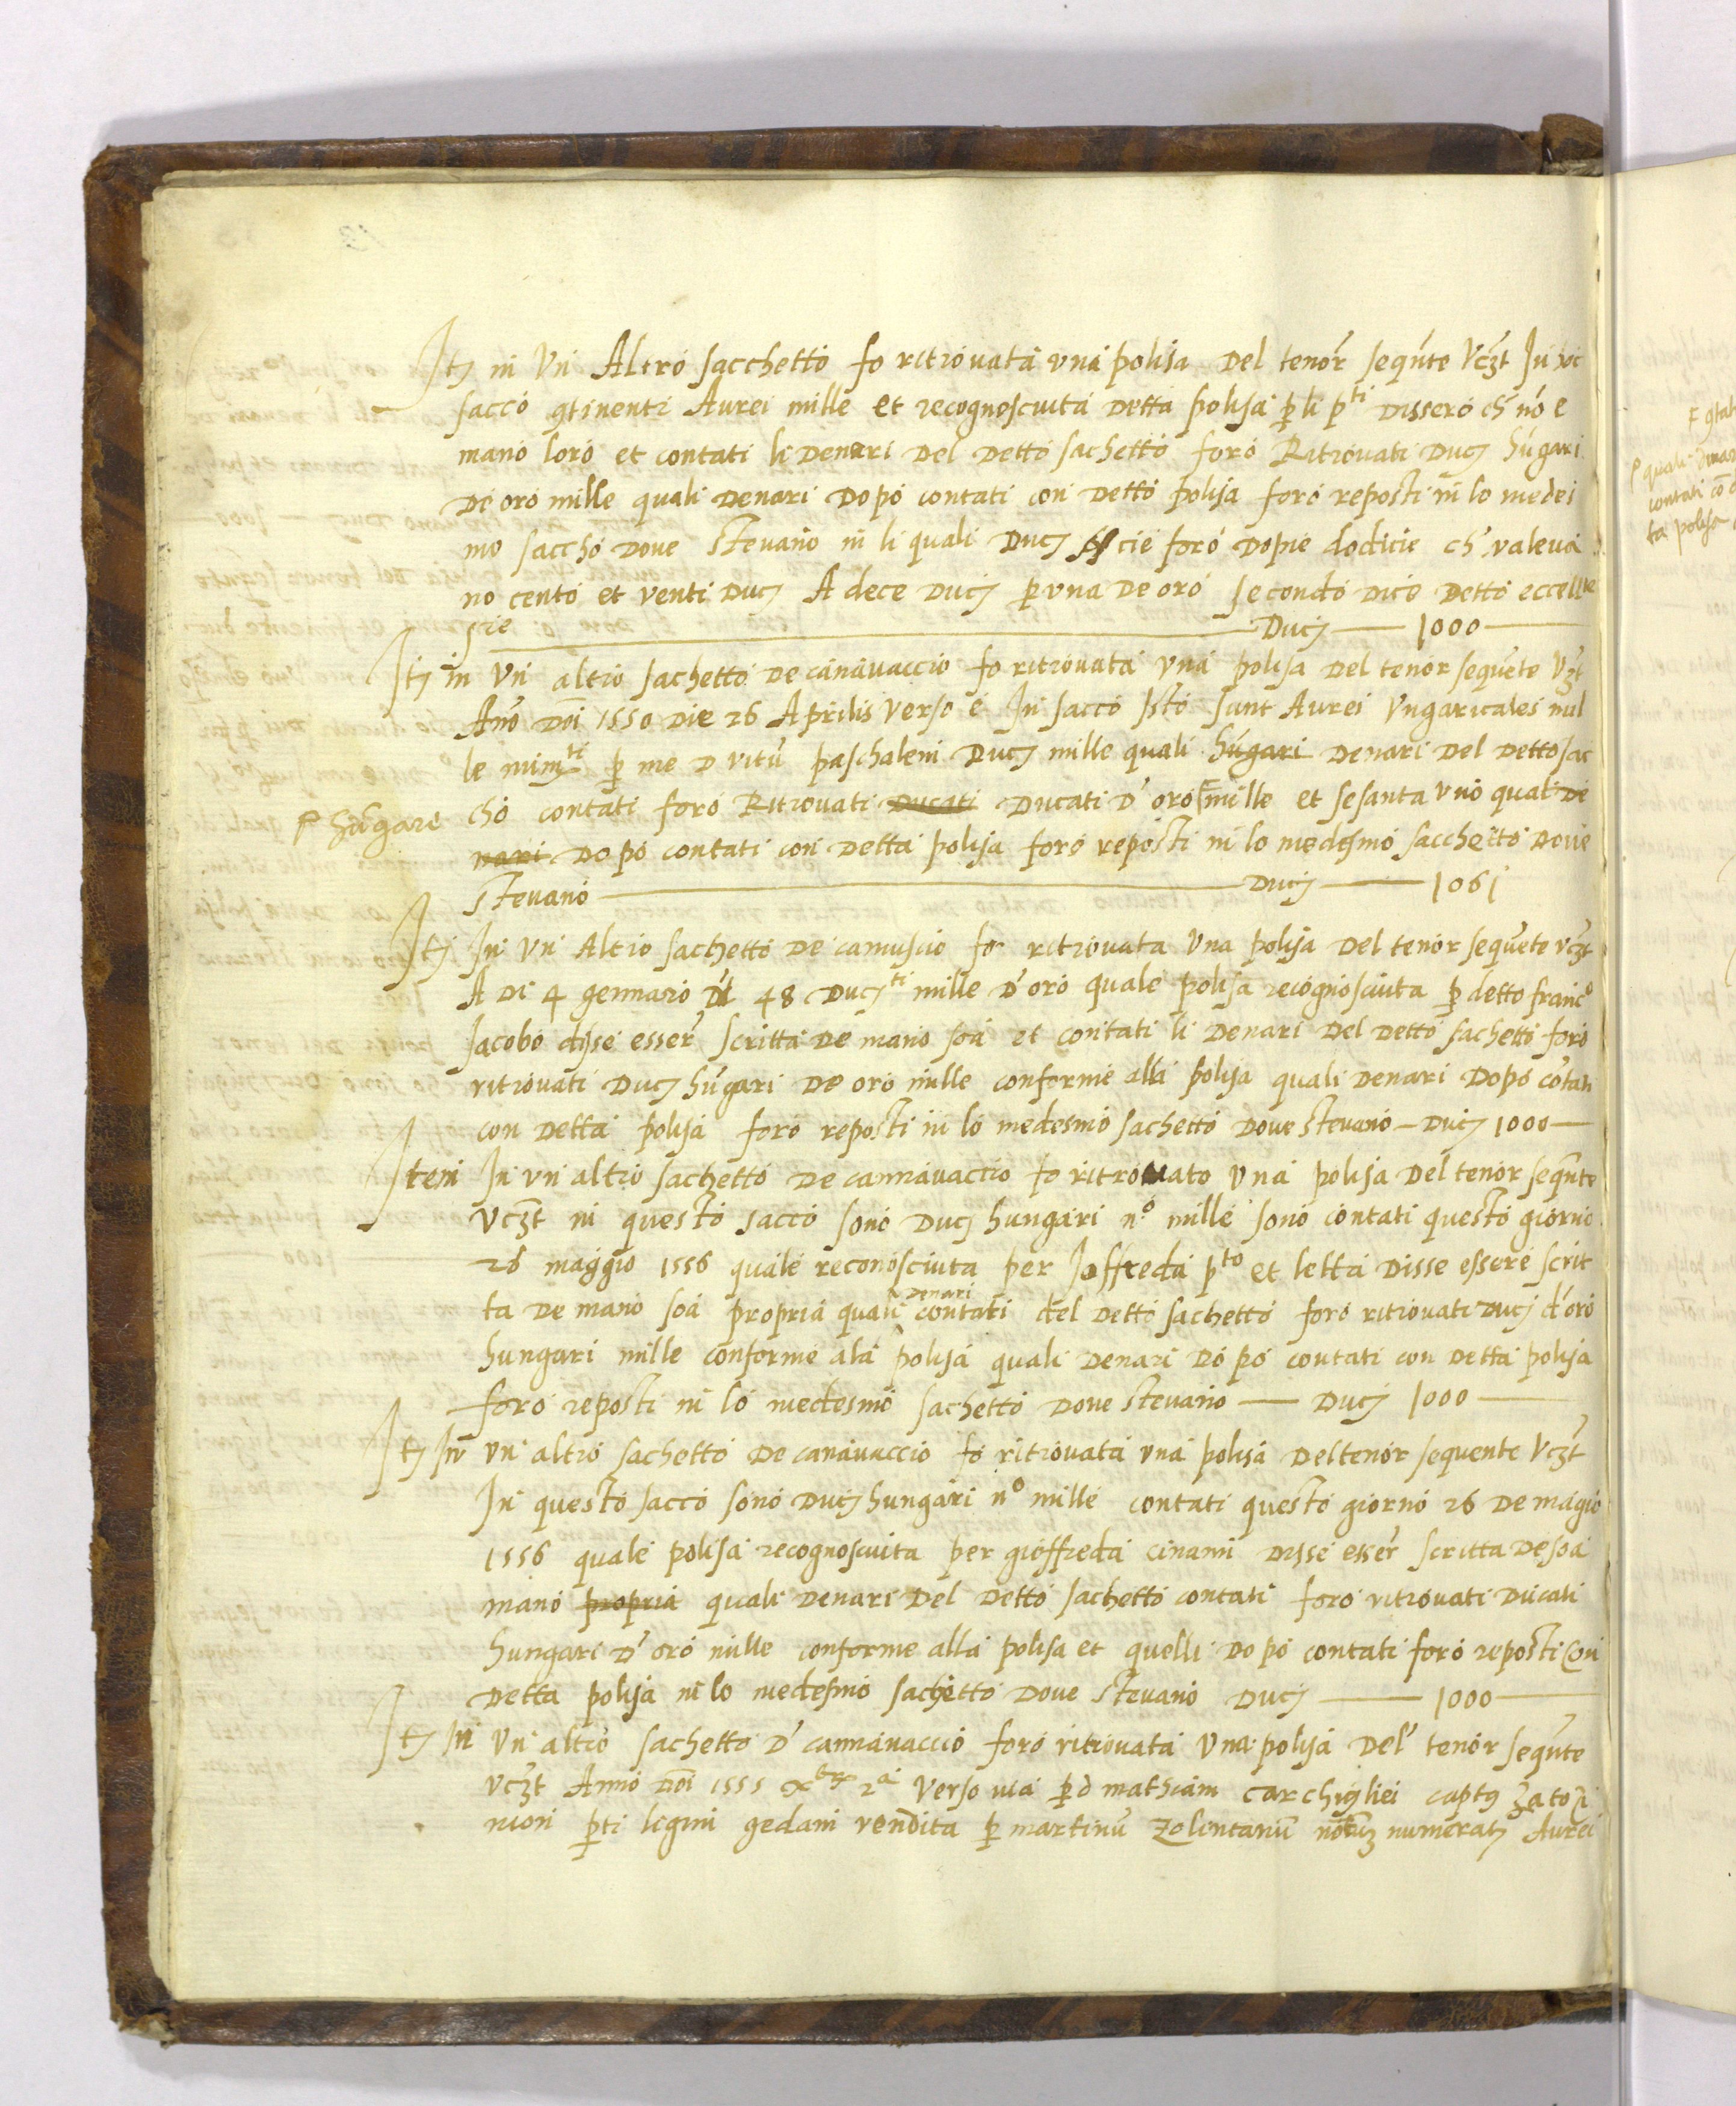 Itz in Un Altro sacchetto fo ritrovata una polisa del tenor sequnte Vczt In
sacco gtinenti Aurei mille et recognosciuta detta polisa p li pti dissero ch no e
mano loro et contati li denari del detto sachetto foro Ritrovati Ducj hugari
de oro mille quali denari dopo contati con detto polisa foro reposti in lo medes
mo saccho dove stevano in li quali Ducj cie foro dopie dodicie ch valeva
no cento et venti Ducj A dece Ducj p una de oro secondo dice detto eccelle
Ducj 1000
Itz in Un altro sachetto de canavaccio fo ritrovata una polisa del tenor sequete Vzt
Ano Doi 1550 Die 26 Aprilis verso e In sacco Isto sunt Aurei Ungaricales mil
le p me D vitu paschaleni Ducj mille quali hugari denari del detto sac
cho contati foro Ritrovati Ducati Ducati d'oro mille et sesanta uno quali de
hugare
nari dopo contati con detta polisa foro reposti in lo medesmo sacchetto dove
stevano Ducj 1061
Itz In Un Altro sachetto de camuscio fo ritrovata Una polisa del tenor sequete vczt
A di 4 gennaro 48 Ducj ti mille d'oro quale polisa recognosciuta p detto franco
Jacobo disse esser scritta de mano soa et contati li denari del detto sachetto foro
ritrovati Ducj hugari de oro mille conforme alla polisa quali denari dopo cotati
con detta polisa foro reposti in lo medesmo sachetto dove stevano Ducj 1000
Item In un altro sachetto de cannavaccio fo ritrovato una polisa del tenor seqnte
vczt in questo sacco sono Ducj hungari no mille sono contati questo giorno
26 maggio 1556 quale reconosciuta per Joffreda pto et letta disse essere scrit
ta de mano soa propria quali denari contati del detto sachetto foro ritrovati Ducj d'oro
hungari mille conforme ala polisa quali denari dopo contati con detta polisa
foro reposti in lo medesmo sachetto dove stevano Ducj 1000
Itz In un altro sachetto de canavaccio fo ritrovata una polisa del tenor sequente Vczt
In questo sacco sono Ducj hungari no mille contati questo giorno 26 de magio
1556 quale polisa recognosciuta per gioffreda cinami disse esser scritta de soa
mano propria quali denari del detto sachetto contati foro ritrovati Ducati
hungari d'oro mille conforme alla polisa et quelli dopo contati foro reposti con
detta polisa in lo medesmo sachetto dove stevano Ducj 1000
Itz In Un altro sachetto d' cannavaccio foro ritrovata Una polisa del tenor seqnte
vczt Anno Doi 1555 2a verso p d mathiam
p martinu Aurei